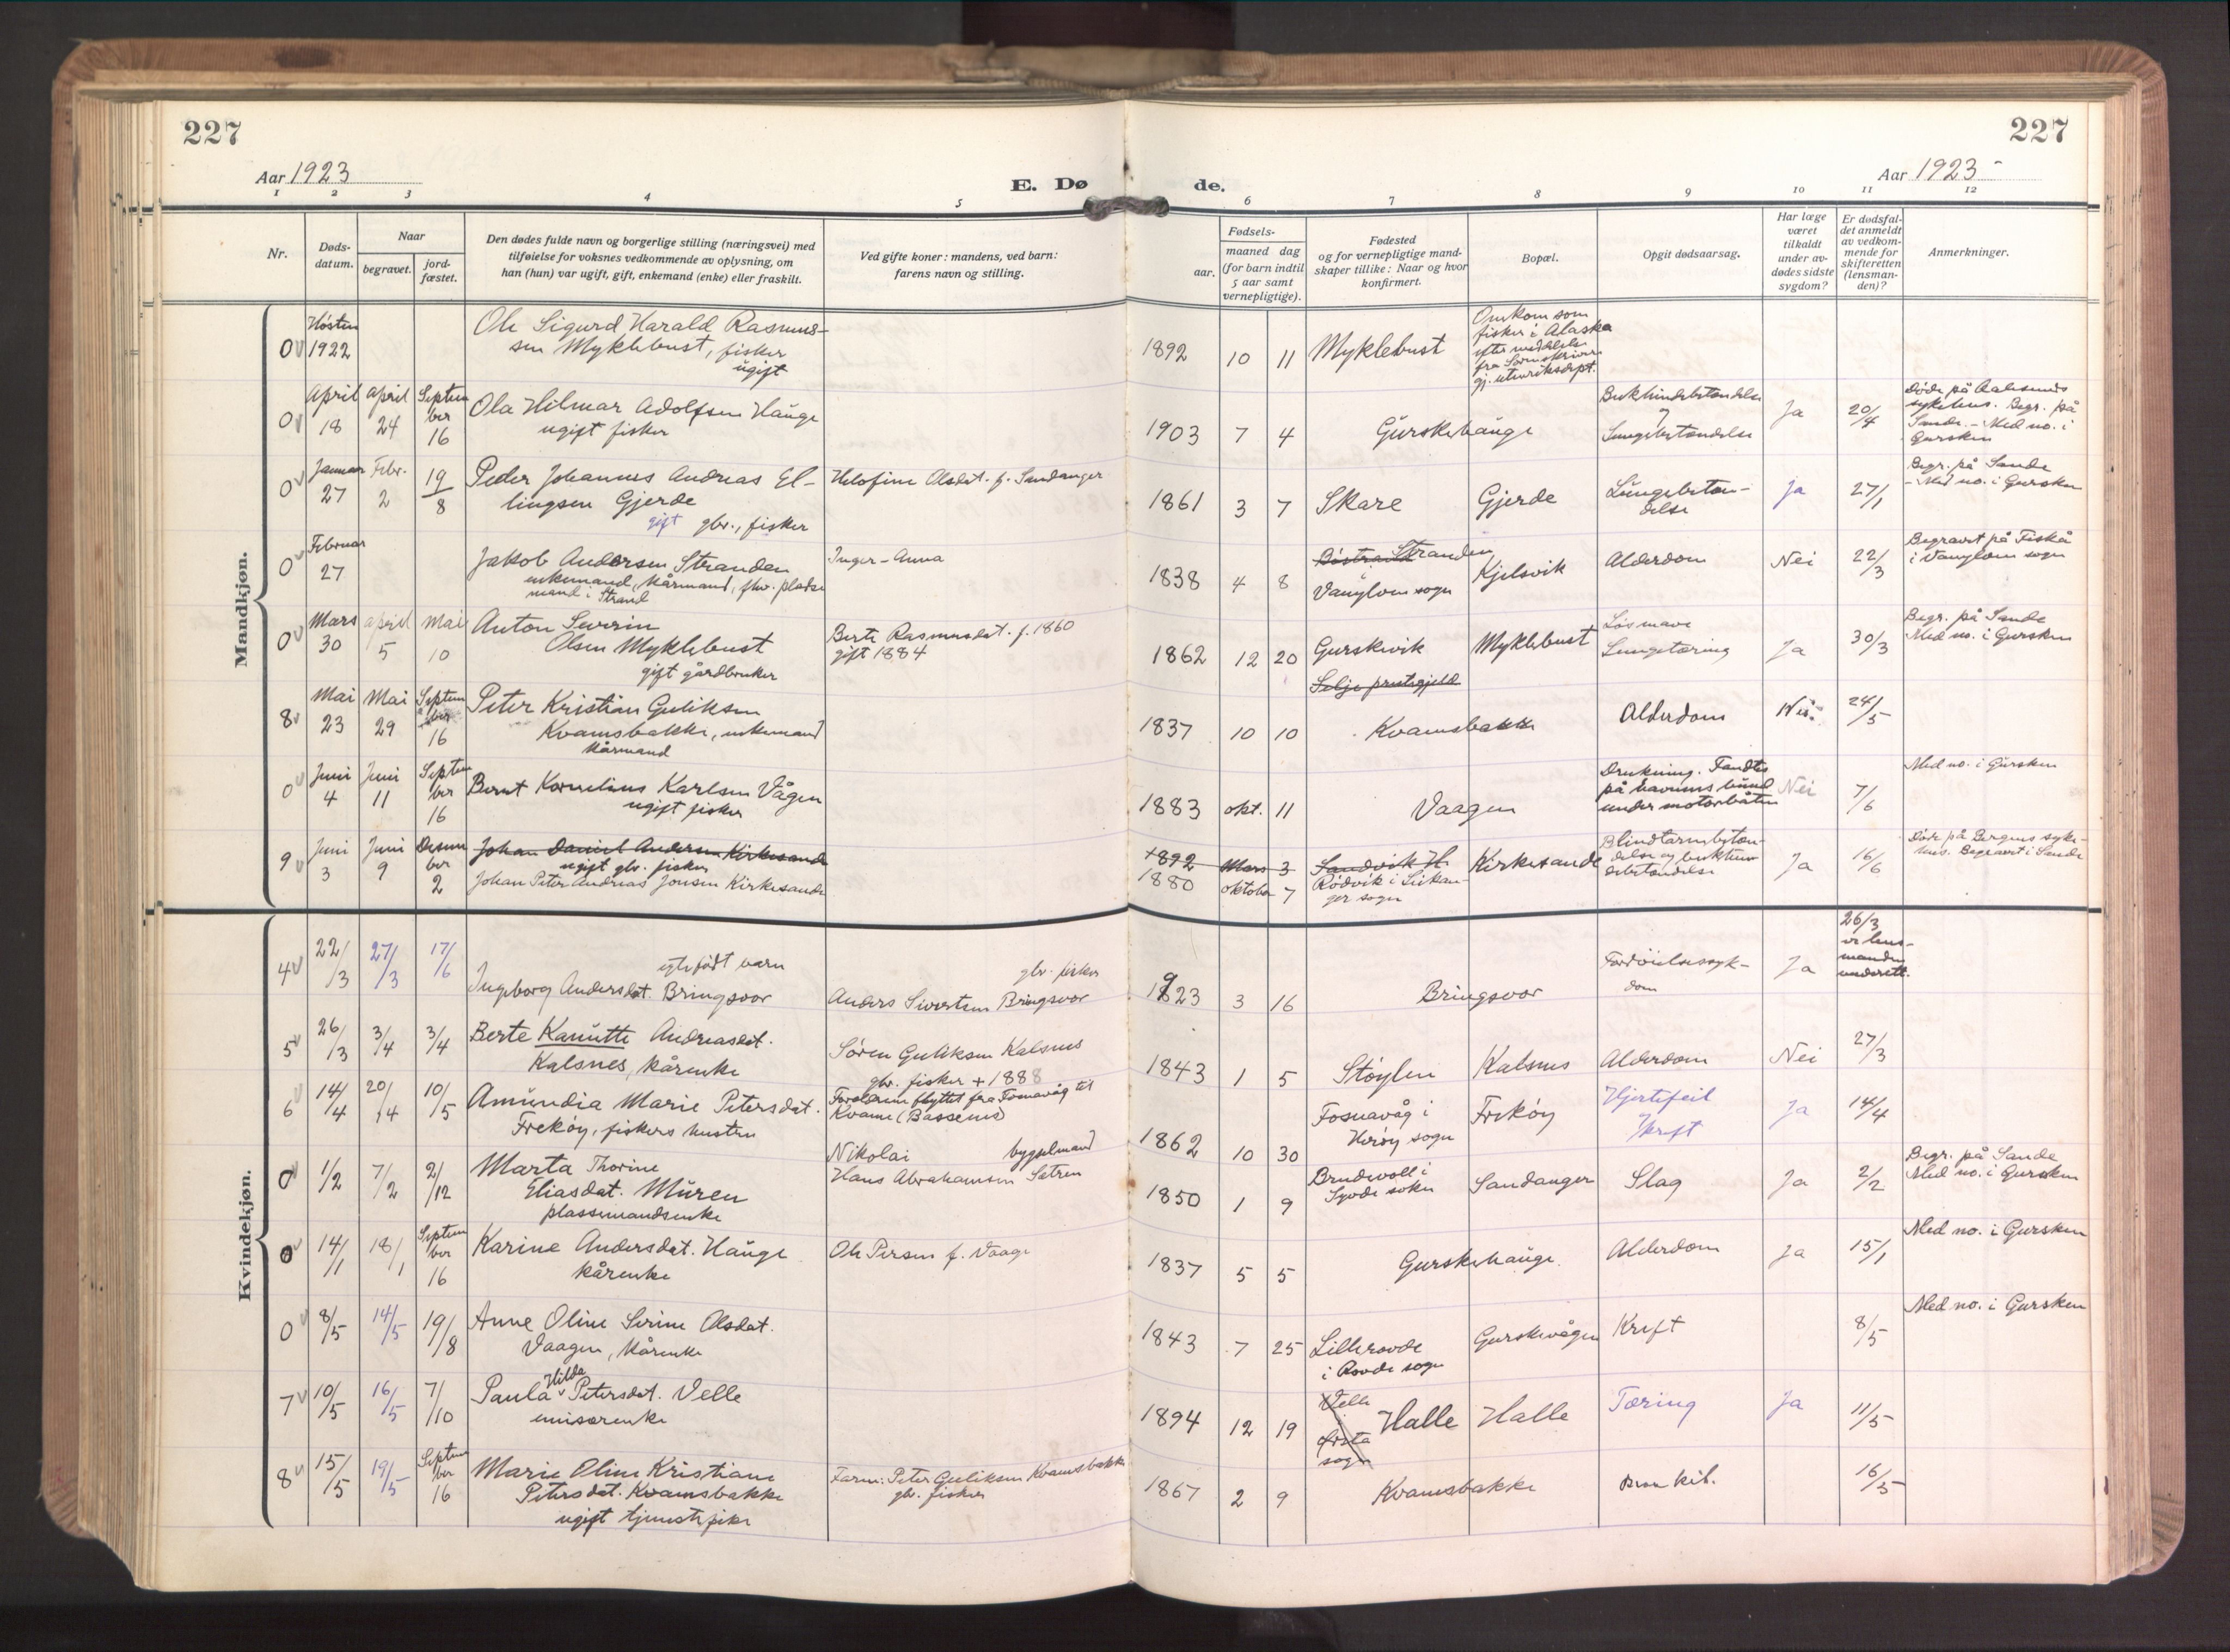 227
227
Aar 1923
E. Dø
de.
Aar 1923 -
1 2 3 4 5 6 7 8 9 10 11 12
Nr.
Døds-
datum.
Naar
begravet.
jord-
fæstet.
Den dødes fulde navn og borgerlige stilling (næringsvei) med
tilføielse for voksnes vedkommende av oplysning, om
han (hun) var ugift, gift, enkemand (enke) eller fraskilt.
Ved gifte koner: mandens, ved barn:
farens navn og stilling.
Fødsels-
aar.
maaned dag
(for barn indtil
5 aar samt
vernepligtige).
Fødested
og for vernepligtige mand-
skaper tillike: Naar og hvor
konfirmert.
Bopæl.
Opgit dødsaarsag.
Har læge
været
tilkaldt
under av-
dødes sidste
sygdom?
Er dødsfal-
det anmeldt
av vedkom-
mende for
skifteretten
(lensman-
den)?
Anmerkninger.
Mandkjøn.
0 Høsten
1922
Ole Sigurd Harald Rasmus-
sen Myklebust, fisker
ugift
1892 10 11 Myklebust
Omkom som
fisker i Alaska
efter meddelelse
fra Sorenskriver
gj. utenriksdept.
0 April 18 April 24 Septem
ber 16
Ola Hilmar Adolfsen Hauge
ugift fisker
1903 7 4 Gurskehauge
Bukhindebetændelse
og
Lungebetændelse
Ja 20/4
Døde på Aalesunds
sykehus. Begr. på
Sande. - Med no. i
Gursken
0 Januar 27 Febr. 2 19/8
Peder Johannes Andreas El-
lingsen Gjerde
gift gbr., fisker
Helofine Olsdat. f. Sandanger
1861 3 7 Skare Gjerde
Lungebetæn-
delse
Ja 27/1
Begr. på Sande
- Med no. i Gursken
0 Februar 27
Jakob Andersen Stranden
enkemand, kårmand, fhv. plads-
mand i Strand
Inger-Anna
1838 4 8
Stranden
Vanylven sogn
Kjelsvik Alderdom Nei 22/3
Begravet på Fiskå
i Vanylven sogn
0 Mars 30 April 5 Mai 10
Anton Severin
Olsen Myklebust
gift gårdbruker
Berte Rasmusdat. f. 1860
gift 1884
1862 12 20 Gurskevik Myklebust
Lungetæring
Ja 30/3
Begr. på Sande
Med no. i Gursken
8 Mai 23 Mai 29 Septem
ber 16
Peter Kristian Guliksen
Kvamsbakke, enkemand
kårmand
Selje prestegjeld
1837 10 10 Kvamsbakke
Alderdom Nei 24/5
0 Juni 4 Juni 11 Septem
ber 16
Bernt Kornelius Karlsen Vågen
ugift fisker
1883 okt. 11 Vaagen
Drukning. Fandtes
på havnens bund
under motorbåten
Nei 7/6
Med no. i Gursken
9 Juni 3 Juni 9 Desem
ber 2
Johan Daniel Andersen Kirkesande
ugift gbr. fisker
Johan Peter Andreas Jonsen Kirkesande
1892 Mars 3 Sandvik H.
1880 oktober 7 Rødvik i Leikan-
ger sogn
Kirkesande
Blindtarmbetæn-
delse og bukhin-
debetændelse
Ja 16/6
Døde på Bergens syke-
hus. Begravet i Sande
Kvindekjøn.
4 22/3 27/3 17/6
egtefødt barn
Ingeborg Andersdat. Bringsvor
gbr. fisker
Anders Sivertsen Bringsvor
1923 3 16 Bringsvor
Fordøielsessyk-
dom
Ja
26/3
lens-
manden
underrett.
5 26/3 3/4 3/4
Berte Kanutte Andreasdat.
Kalsnes, kårenke
Søren Guliksen Kalsnes
gbr. fisker + 1888
1843 1 5 Støylen Kalsnes Alderdom Nei 27/3
6 14/4 20/4 10/5
Amundia Marie Petersdat.
Frekøy, fiskers hustru
Forældrene flyttet fra Fosnavåg til
Kvame (Bassenes)
1862 10 30
Fosnavåg i
Herøy sogn
Frekøy
Hjertefeil
Kreft
Ja 14/4
0 1/2 7/2 2/12
Marta Thorine
Eliasdat. Muren
plassemandsenke
Nikolai bygselmand
Hans Abrahamsen Sætren
1850 1 9
Brudevoll i
Syvde sokn
Sandanger Slag Ja 2/2
Begr. på Sande
Med no. i Gursken
0 14/1 18/1 Septem
ber 16
Karine Andersdat. Hauge
kårenke
Ole Persen f. Vaage
1837 5 5 Gurskehauge.
Alderdom Ja 15/1
Med no. i Gursken
0 8/5 14/5 19/8
Anne Oline Serine Olsdat.
Vaagen, kårenke
1843 7 25
Lillerovde
i Rovde sogn
Gurskevågen Kreft 8/5
Med no. i Gursken
7 10/5 16/5 7/10
Hilda
Paula Petersdat. Velle
1894 12 19
Velle
Ørsta
sogn
Halle Halle Tæring Ja 11/5
8 15/5 19/5 Septem
ber 16
Marie Oline Kristiane
Petersdat. Kvamsbakke
ugift tjenestepike
Faren: Peter Guliksen Kvamsbakke
gbr. fisker
1867 2 9 Kvamsbakke
16/5